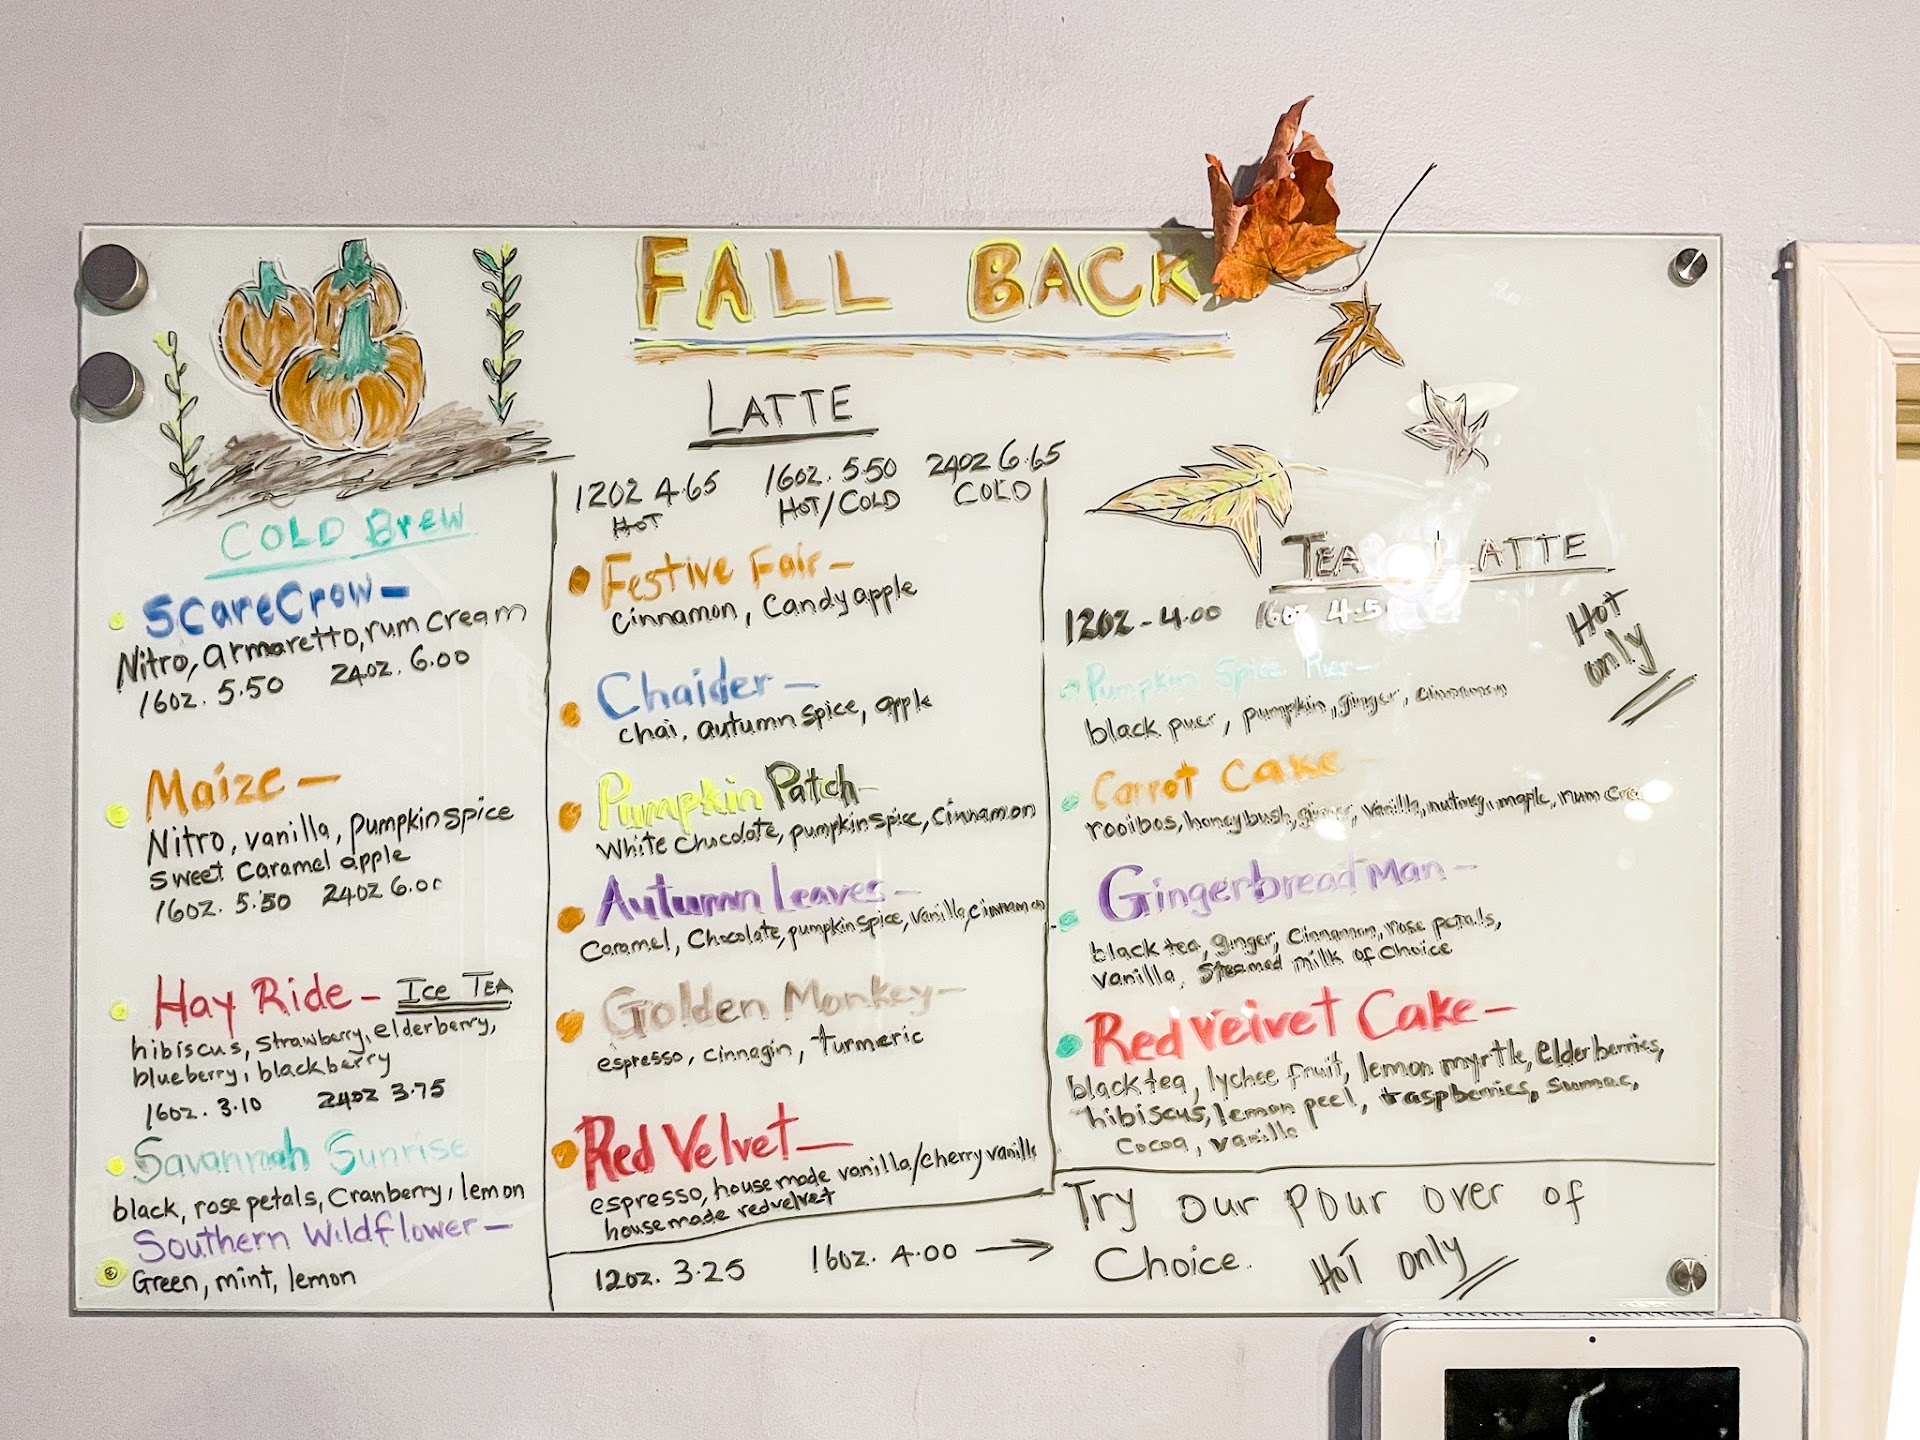 FALL BACK
COLD BREW
ScareCrow-
Nitro, armaretto, rum cream
16oz. 5.50 24oz. 6.00
Maize -
Nitro, vanilla, pumpkin spice
sweet caramel apple
16oz. 5.50 24oz 6.00
Hay Ride - Ice TEA
hibiscus, strawberry, elderberry,
blueberry, blackberry
16oz. 3.10 24oz 3.75
Savannah Sunrise
black, rose petals, cranberry, lemon
Southern Wildflower-
Green, mint, lemon
LATTE
12oz 4.65 16oz. 5.50 24oz 6.65
HOT HOT/COLD COLD
Festive Fair-
cinnamon, candy apple
Chaider-
chai, autumn spice, apple
Pumpkin Patch-
White chocolate, pumpkin spice, cinnamon
Autumn Leaves-
Caramel, Chocolate, pumpkin spice, vanilla, cinnamon
Golden Monkey-
espresso, cinnagin, turmeric
Red Velvet-
espresso, house made vanilla/cherry vanilla
house made redvelvet
12oz. 3.25 16oz. 4.00 →
TEA LATTE
12oz - 4.00 16oz 4.5
Hot
only
Pumpkin Spice Puer-
black puer, pumpkin, ginger, cinnamon
Carrot Cake-
rooibos, honeybush, ginger, vanilla, nutmeg, maple, rum
Gingerbread Man-
black tea, ginger, cinnamon, rose petals,
vanilla, steamed milk of choice
Red Velvet Cake-
black tea, lychee fruit, lemon myrtle, elderberries,
hibiscus, lemon peel, raspberries, sumac,
cocoa, vanilla
Try our pour over of
Choice. Hot only